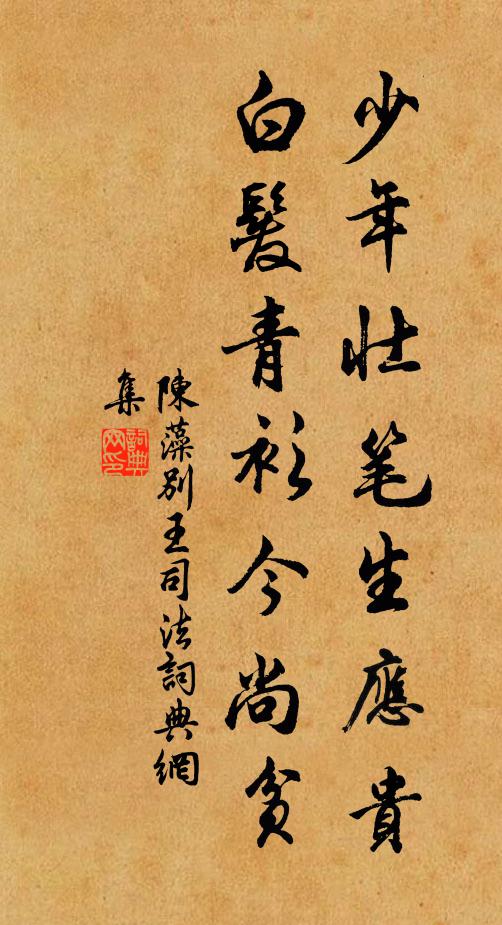 少年壮笔生應貴
白髮青衫今尚貧
陳藻别王司法詞典網
集
詞典
网印